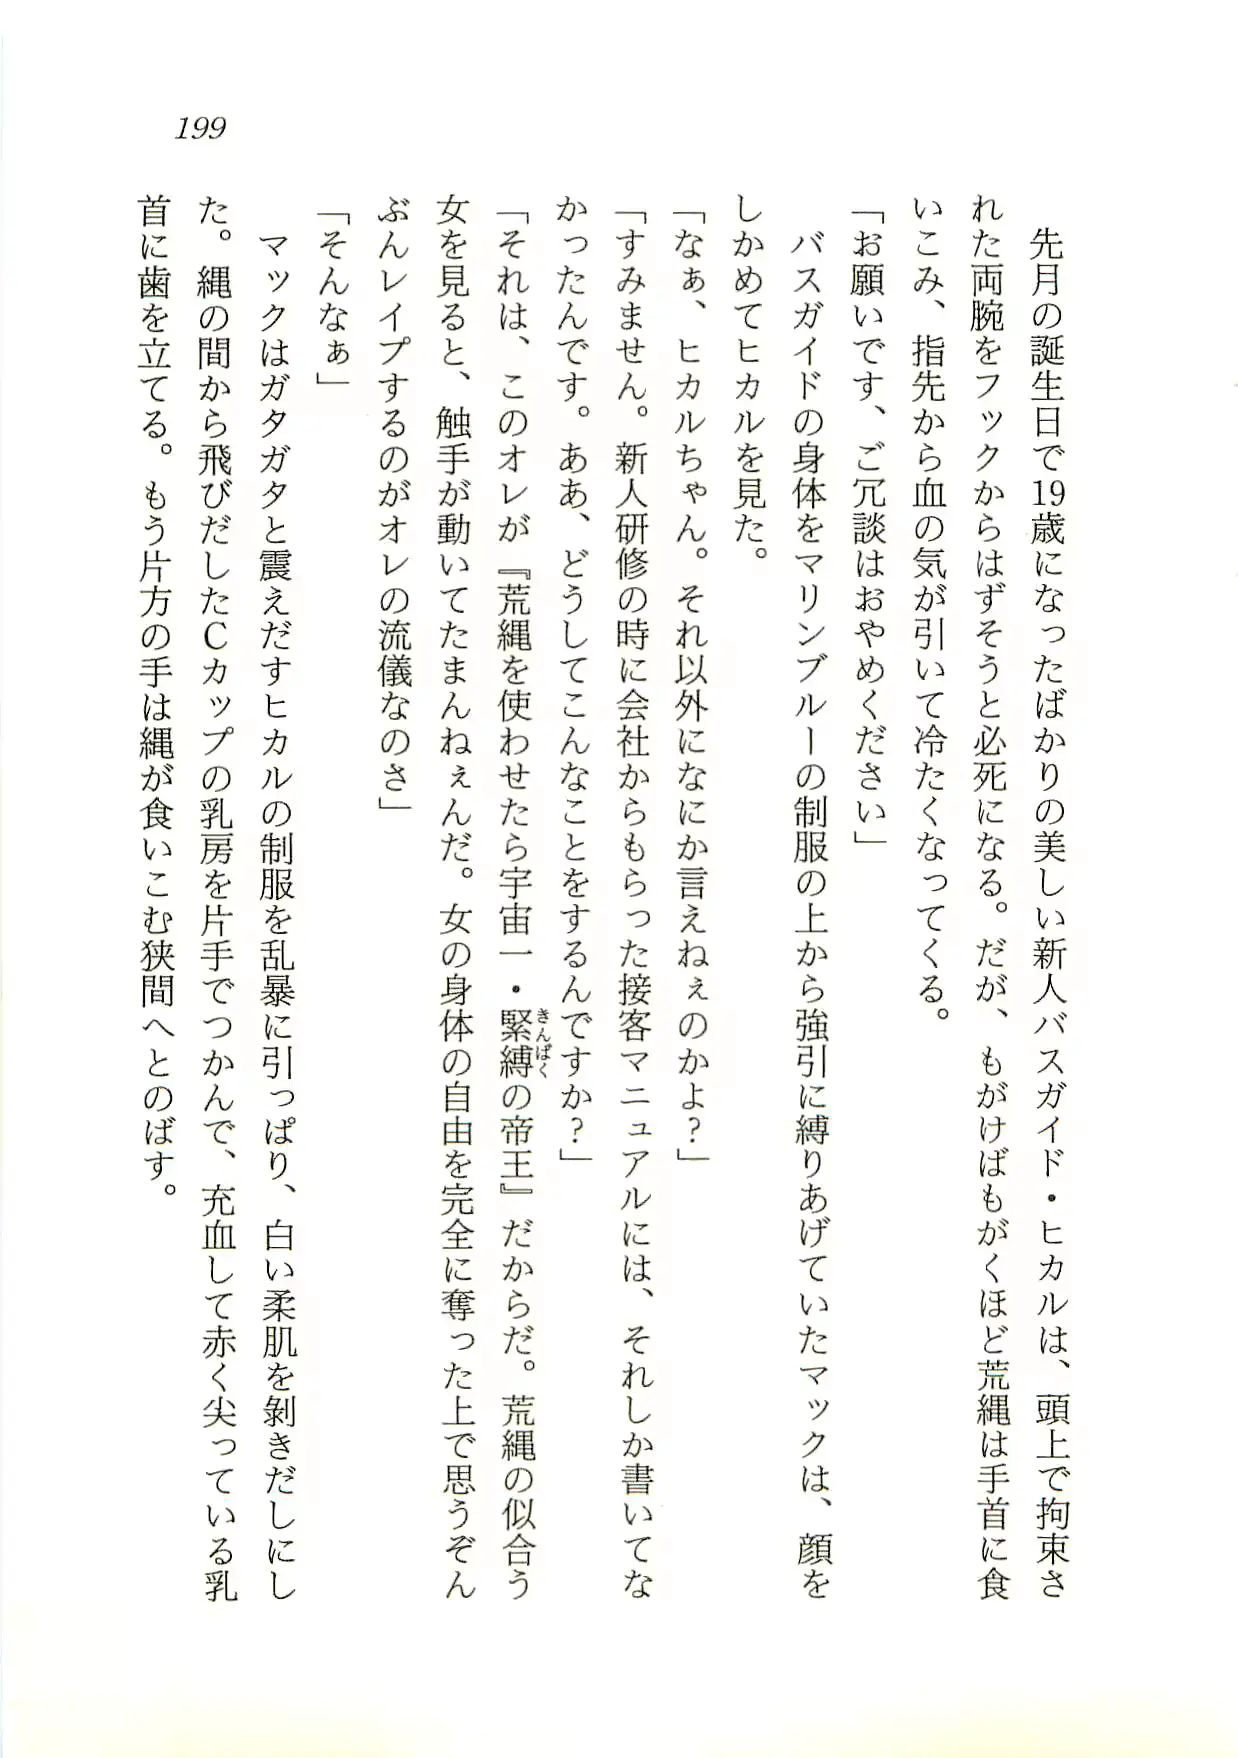 199
先月の誕生日で19歳になったばかりの美しい新人バスガイド・ヒカルは、頭上で拘束さ
れた両腕をフックからはずそうと必死になる。だが、もがけばもがくほど荒縄は手首に食
いこみ、指先から血の気が引いて冷たくなってくる。
「お願いです、ご冗談はおやめください」
バスガイドの身体をマリンブルーの制服の上から強引に縛りあげていたマックは、顔を
しかめてヒカルを見た。
「なぁ、ヒカルちゃん。それ以外になにか言えねぇのかよ？」
「すみません。新人研修の時に会社からもらった接客マニュアルには、それしか書いてな
かったんです。ああ、どうしてこんなことをするんですか？」
「それは、このオレが『荒縄を使わせたら宇宙一・緊縛の帝王』だからだ。荒縄の似合う
きんばく
女を見ると、触手が動いてたまんねぇんだ。女の身体の自由を完全に奪った上で思うぞん
ぶんレイプするのがオレの流儀なのさ」
「そんなぁ」
マックはガタガタと震えだすヒカルの制服を乱暴に引っぱり、白い柔肌を剝きだしにし
た。縄の間から飛びだしたＣカップの乳房を片手でつかんで、充血して赤く尖っている乳
首に歯を立てる。もう片方の手は縄が食いこむ狭間へとのばす。